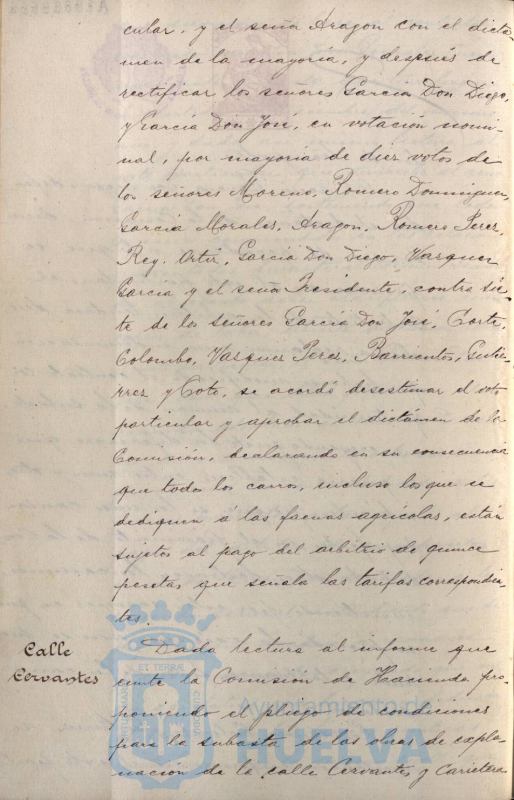 cular, y el señor Aragon con el dicta-
men de la mayoría, y después de
rectificar los señores Garcia Don Diego,
y Garcia Don José, en votación nomi-
nal, por mayoria de diez votos de
los señores Moreno, Romero Dominguez,
Garcia Morales, Aragon, Romero Perez,
Rey, Ortiz, Garcia Don Diego, Vazquez
Garcia y el señor Presidente, contra sie-
te de los señores Garcia Don José, Corte,
Colombo, Vazquez Perez, Barrientos, Gutie-
rrez y Coto, se acordó desestimar el voto
particular y aprobar el dictámen de la
Comisión, declarando en su consecuencia
que todos los carros, incluso los que se
dediquen á las faenas agrícolas, están
sujetos al pago del arbitrio de quince
pesetas que señala las tarifas correspondien-
tes.
Calle
Cervantes
Dada lectura al informe que
emite la Comisión de Hacienda pro-
poniendo el pliego de condiciones
para la subasta de las obras de expla-
nación de la calle Cervantes y Carretera
ET TERRÆ
Ayuntamiento de
HUELVA